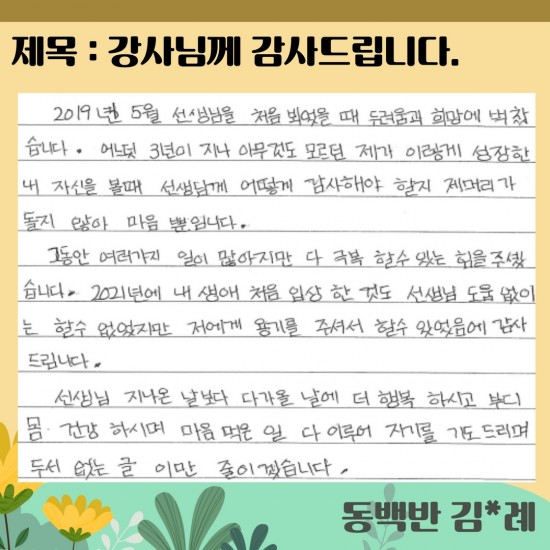 제목 : 강사님께 감사드립니다.
2019년 5월 선생님을 처음 뵈었을 때 두려움과 희망에 벅찼
습니다. 어느덧 3년이 지나 아무것도 모르던 제가 이렇게 성장한
내 자신을 볼때 선생님께 어떻게 감사해야 할지 제머리가
돌지 않아 마음 뿐입니다.
그동안 여러가지 일이 많아지만 다 극복 할수 있는 힘을 주셨
습니다. 2021년에 내 생애 처음 입상 한 것도 선생님 도움 없이
는 할수 없었지만 저에게 용기를 주셔서 할수 있었음에 감사
드립니다.
선생님 지나온 날보다 다가올 날에 더 행복 하시고 부디
몸 건강 하시며 마음 먹은 일 다 이루어 지기를 기도드리며
두서 없는 글 이만 줄이겠습니다.
동백반 김*례